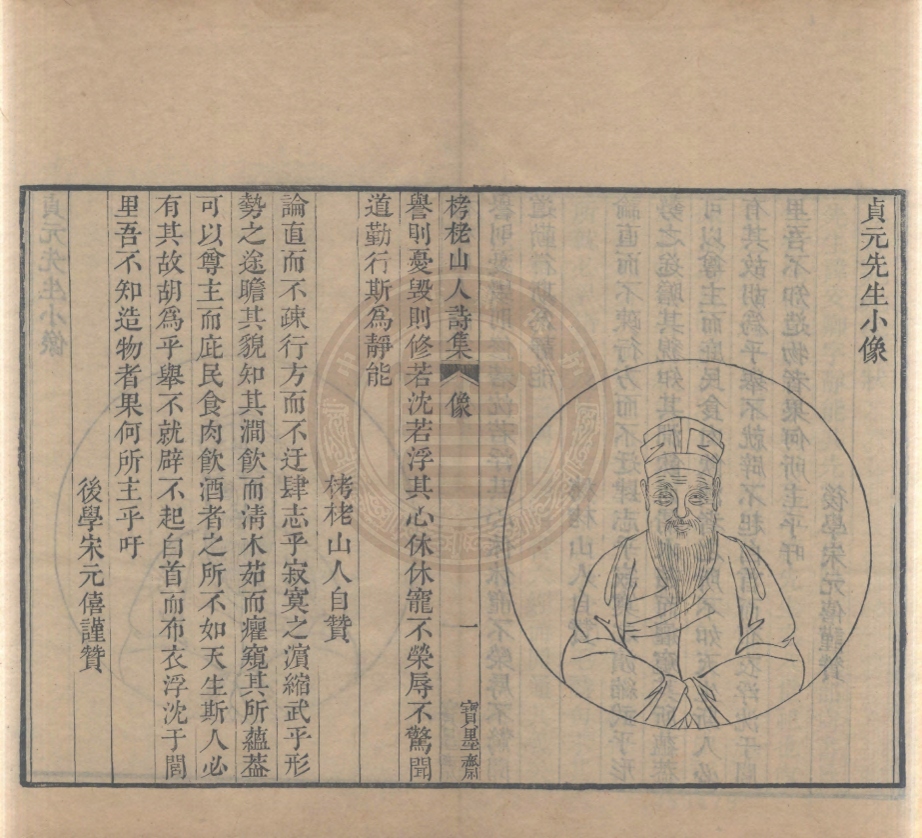 貞元先生小像
栲栳山人詩集
像
一
寶墨齋
譽則憂毀則修若沈若浮其心休休寵不榮辱不驚聞
道勤行斯爲靜能
栲栳山人自贊
論直而不疎行方而不迂肆志乎寂寞之濵縮武乎形
勢之途瞻其貌知其澗飲而清木茹而癯窺其所蘊葢
可以尊主而庇民食肉飲酒者之所不如天生斯人必
有其故胡爲乎舉不就辟不起白首而布衣浮沈于閭
里吾不知造物者果何所主乎吁
後學宋元僖謹贊